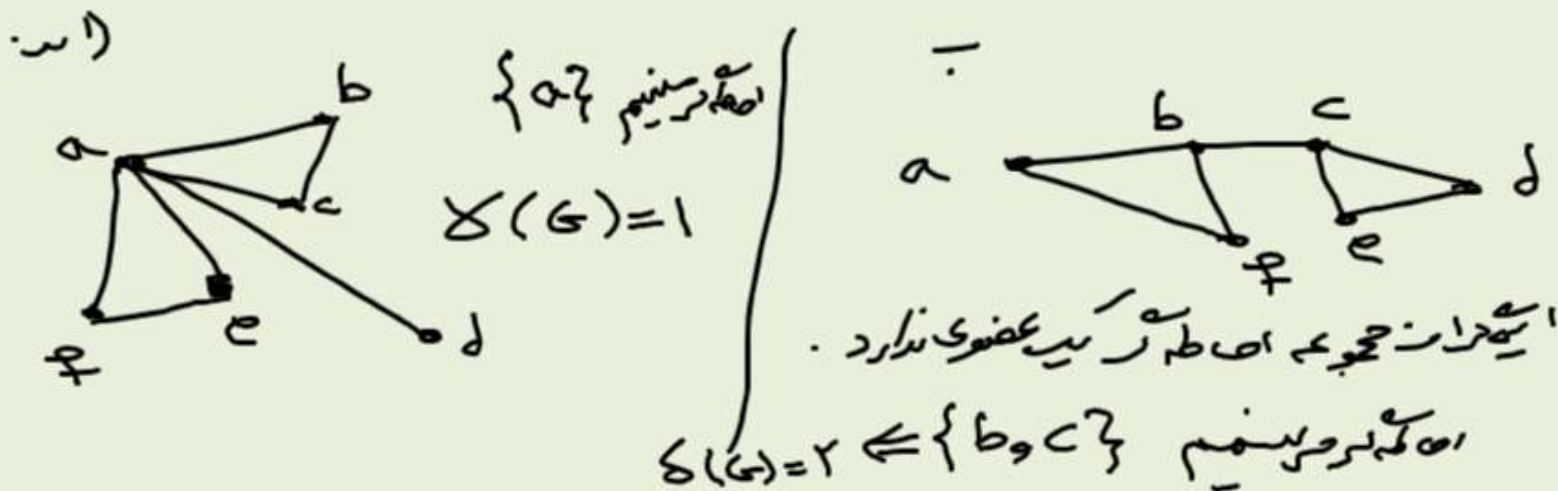 الف)
b
a
c
e
f
d
احاطه‌گر مینیمم {a}
γ(G)=1
ب
a
b
c
d
f
e
این گراف مجموعه احاطه‌گر یک عضوی ندارد.
احاطه‌گر مینیمم {b,c} ⇐ γ(G)=۲